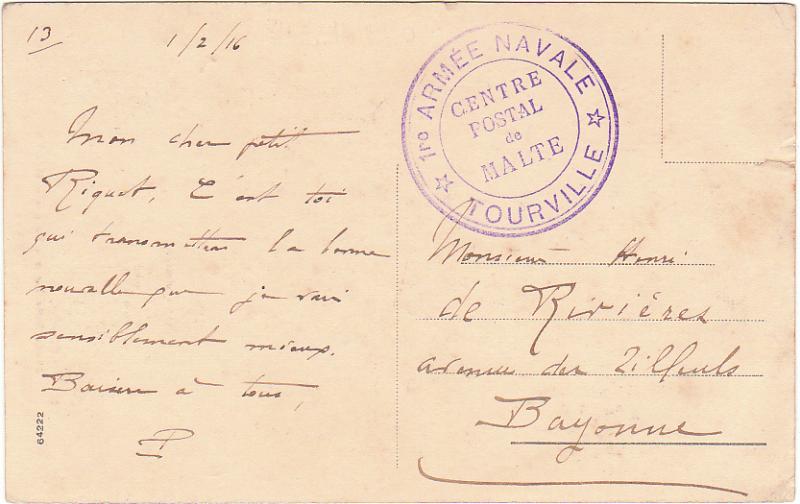 13
1/2/16
Mon cher petit
Riquet, C'est toi
qui transmettras la bonne
nouvelle que je vais
sensiblement mieux.
Baisers à tous,
P
64222
1re ARMÉE NAVALE
CENTRE
POSTAL
de
MALTE
TOURVILLE
Monsieur Henri
de Rivières
avenue des Tilleuls
Bayonne